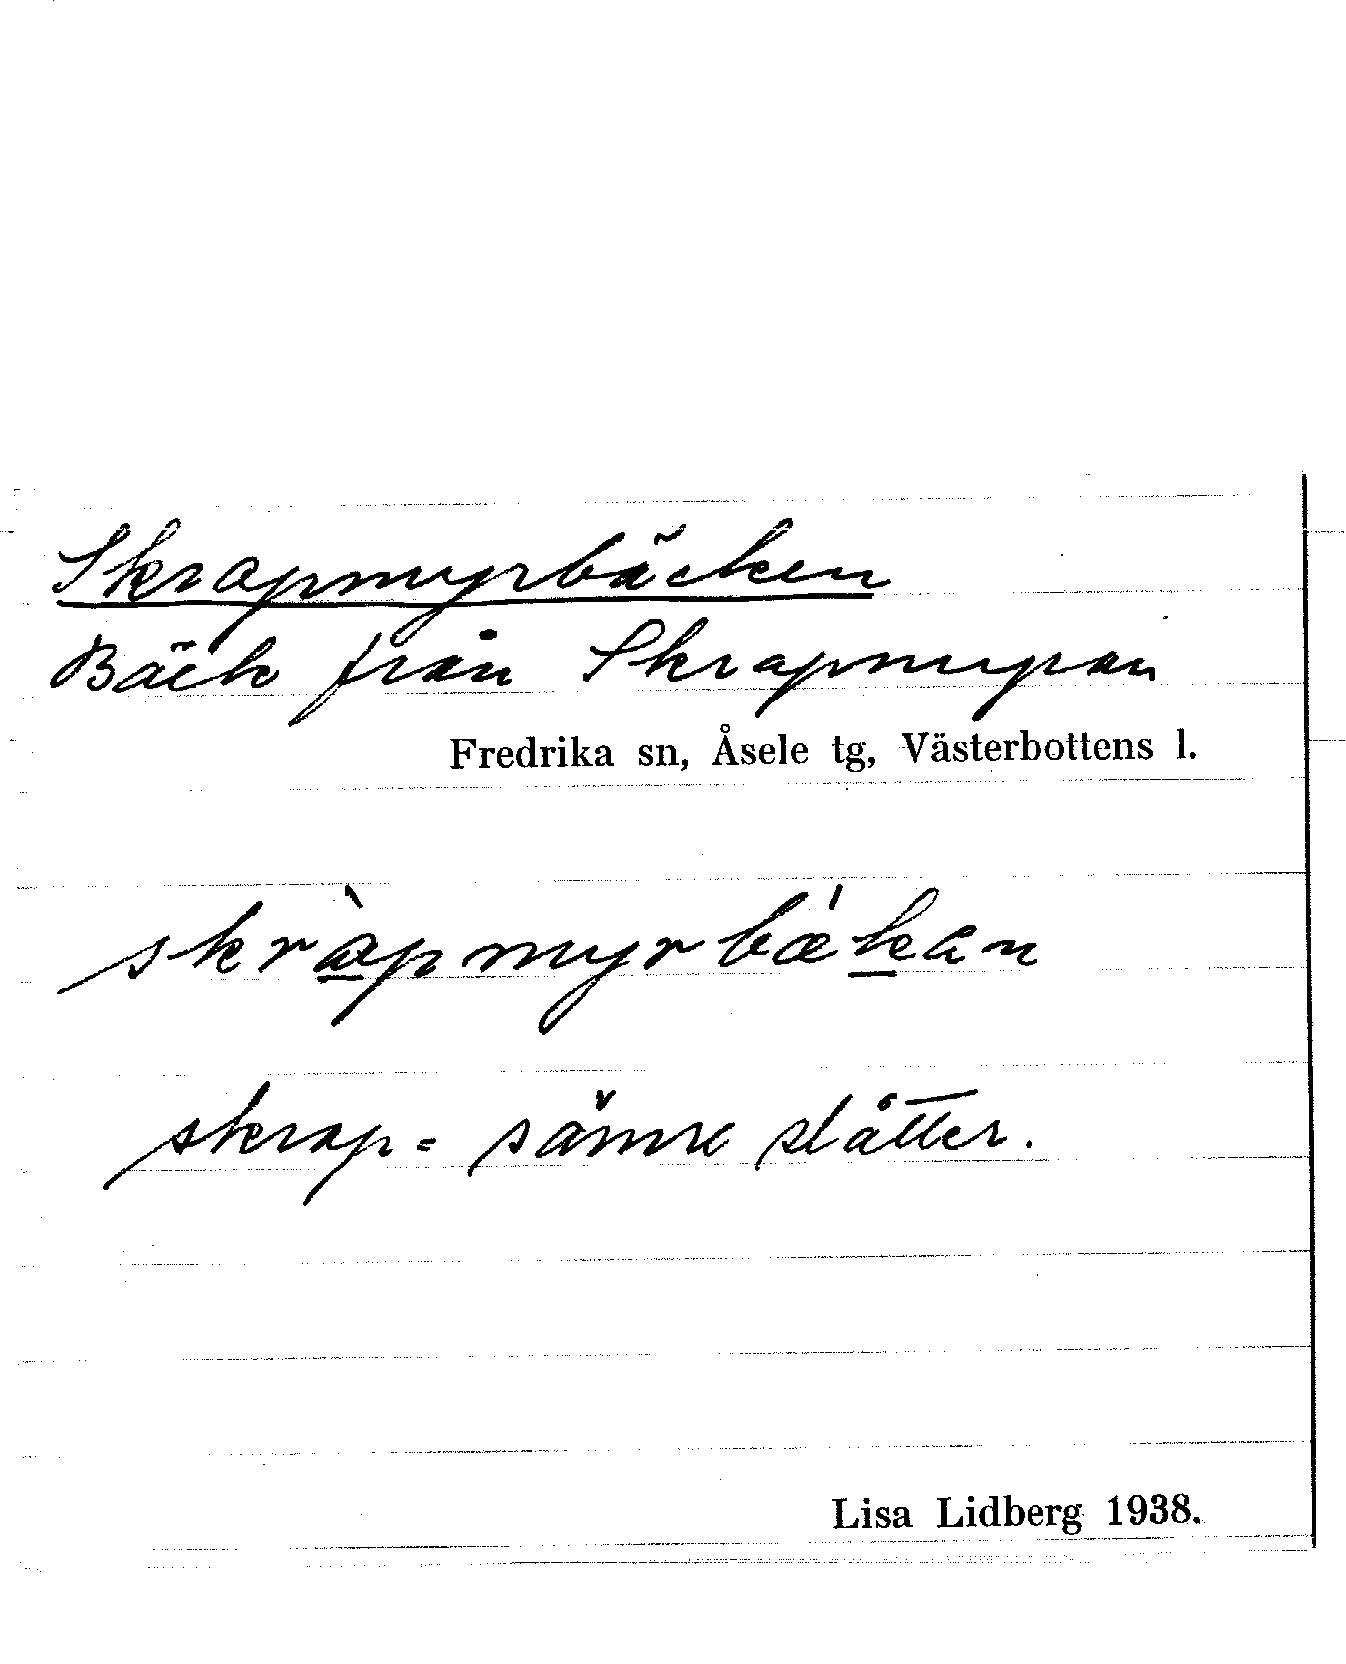 Skrapmyrbäcken
Bäck från Skrapmyran
Fredrika sn, Åsele tg, Västerbottens l.
skrà̲pmyrbǽk̲an
skrap = sämre slåtter.
Lisa Lidberg 1938.